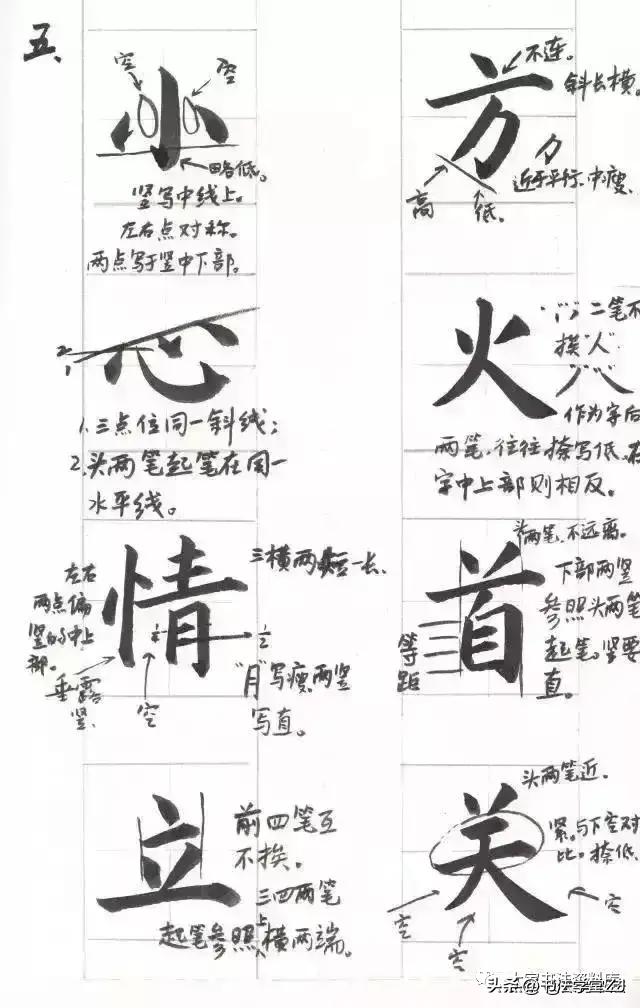 五、
小
空
空
略低。
竖写中线上。
左右点对称。
两点写于竖中下部。
方
不连。
斜长横。
力
近于平行、中瘦
高
低。
心
2,
1,
1.三点位同一斜线；
2.头两笔起笔在同一
水平线。
火
二笔不
挨"人"
作为字后
两笔，往往捺写低，在
字中上部则相反。
情
左右
两点偏
竖的中上
部。
垂露
竖
空
三横两短一长
"月"写瘦，两竖
写直。
首
头两笔，不远离。
下部两竖
参照头两笔
起笔。竖要
直。
等
距
立
前四笔互
不挨。
三四两笔
起笔参照上横两端。
关
头两笔近．
紧。与下空对
比。捺低．
空
空
空
大家书法资料库
头条@书法学堂vag